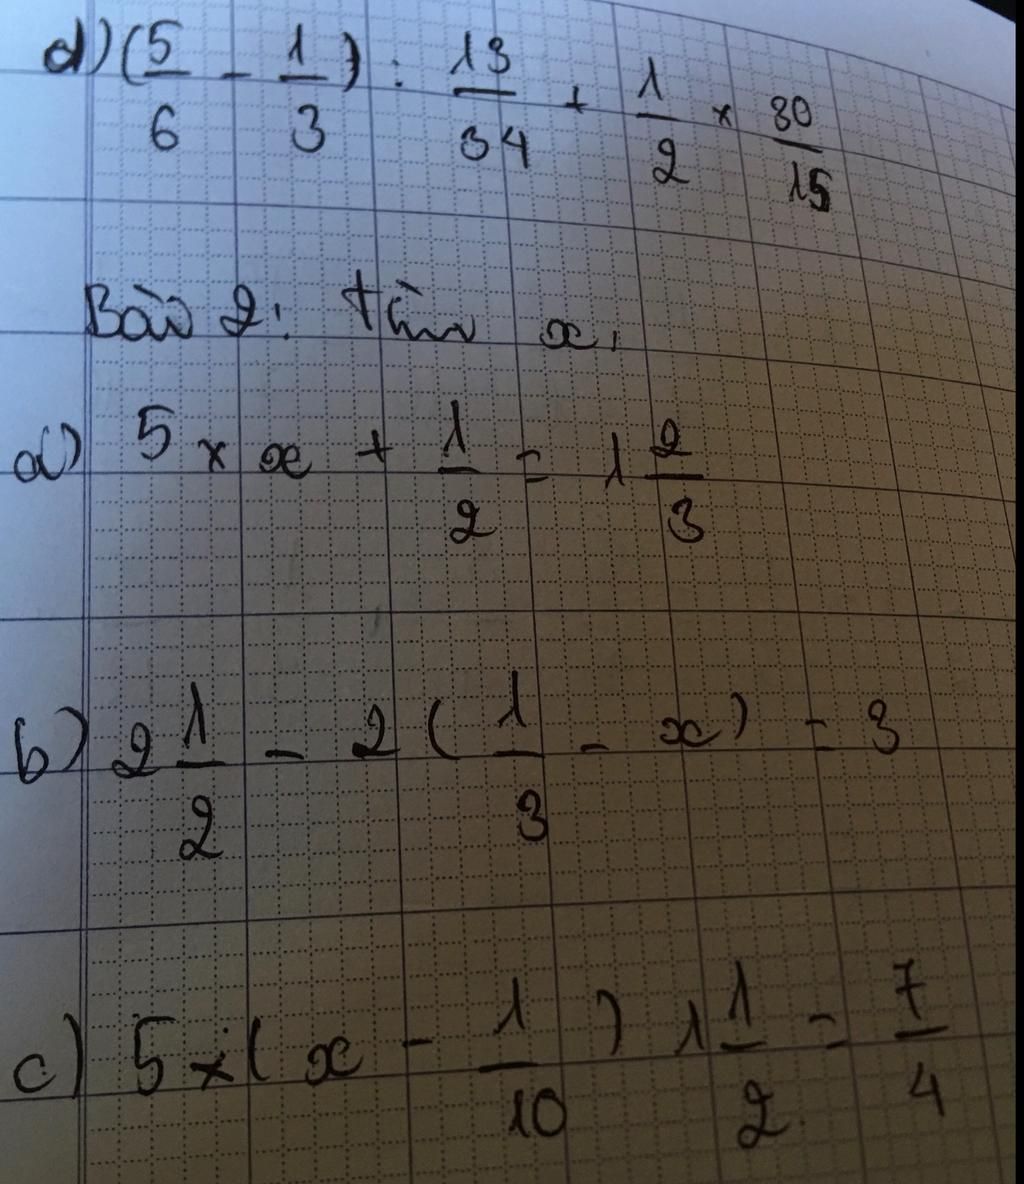 d) (5/6 - 1/3) : 13/34 + 1/2 × 30/15
Bài 2: tìm x,
a) 5 × x + 1/2 = 1 2/3
b) 2 1/2 - 2 (1/3 - x) = 3
c) 5 × (x - 1/10) 1 1/2 = 7/4